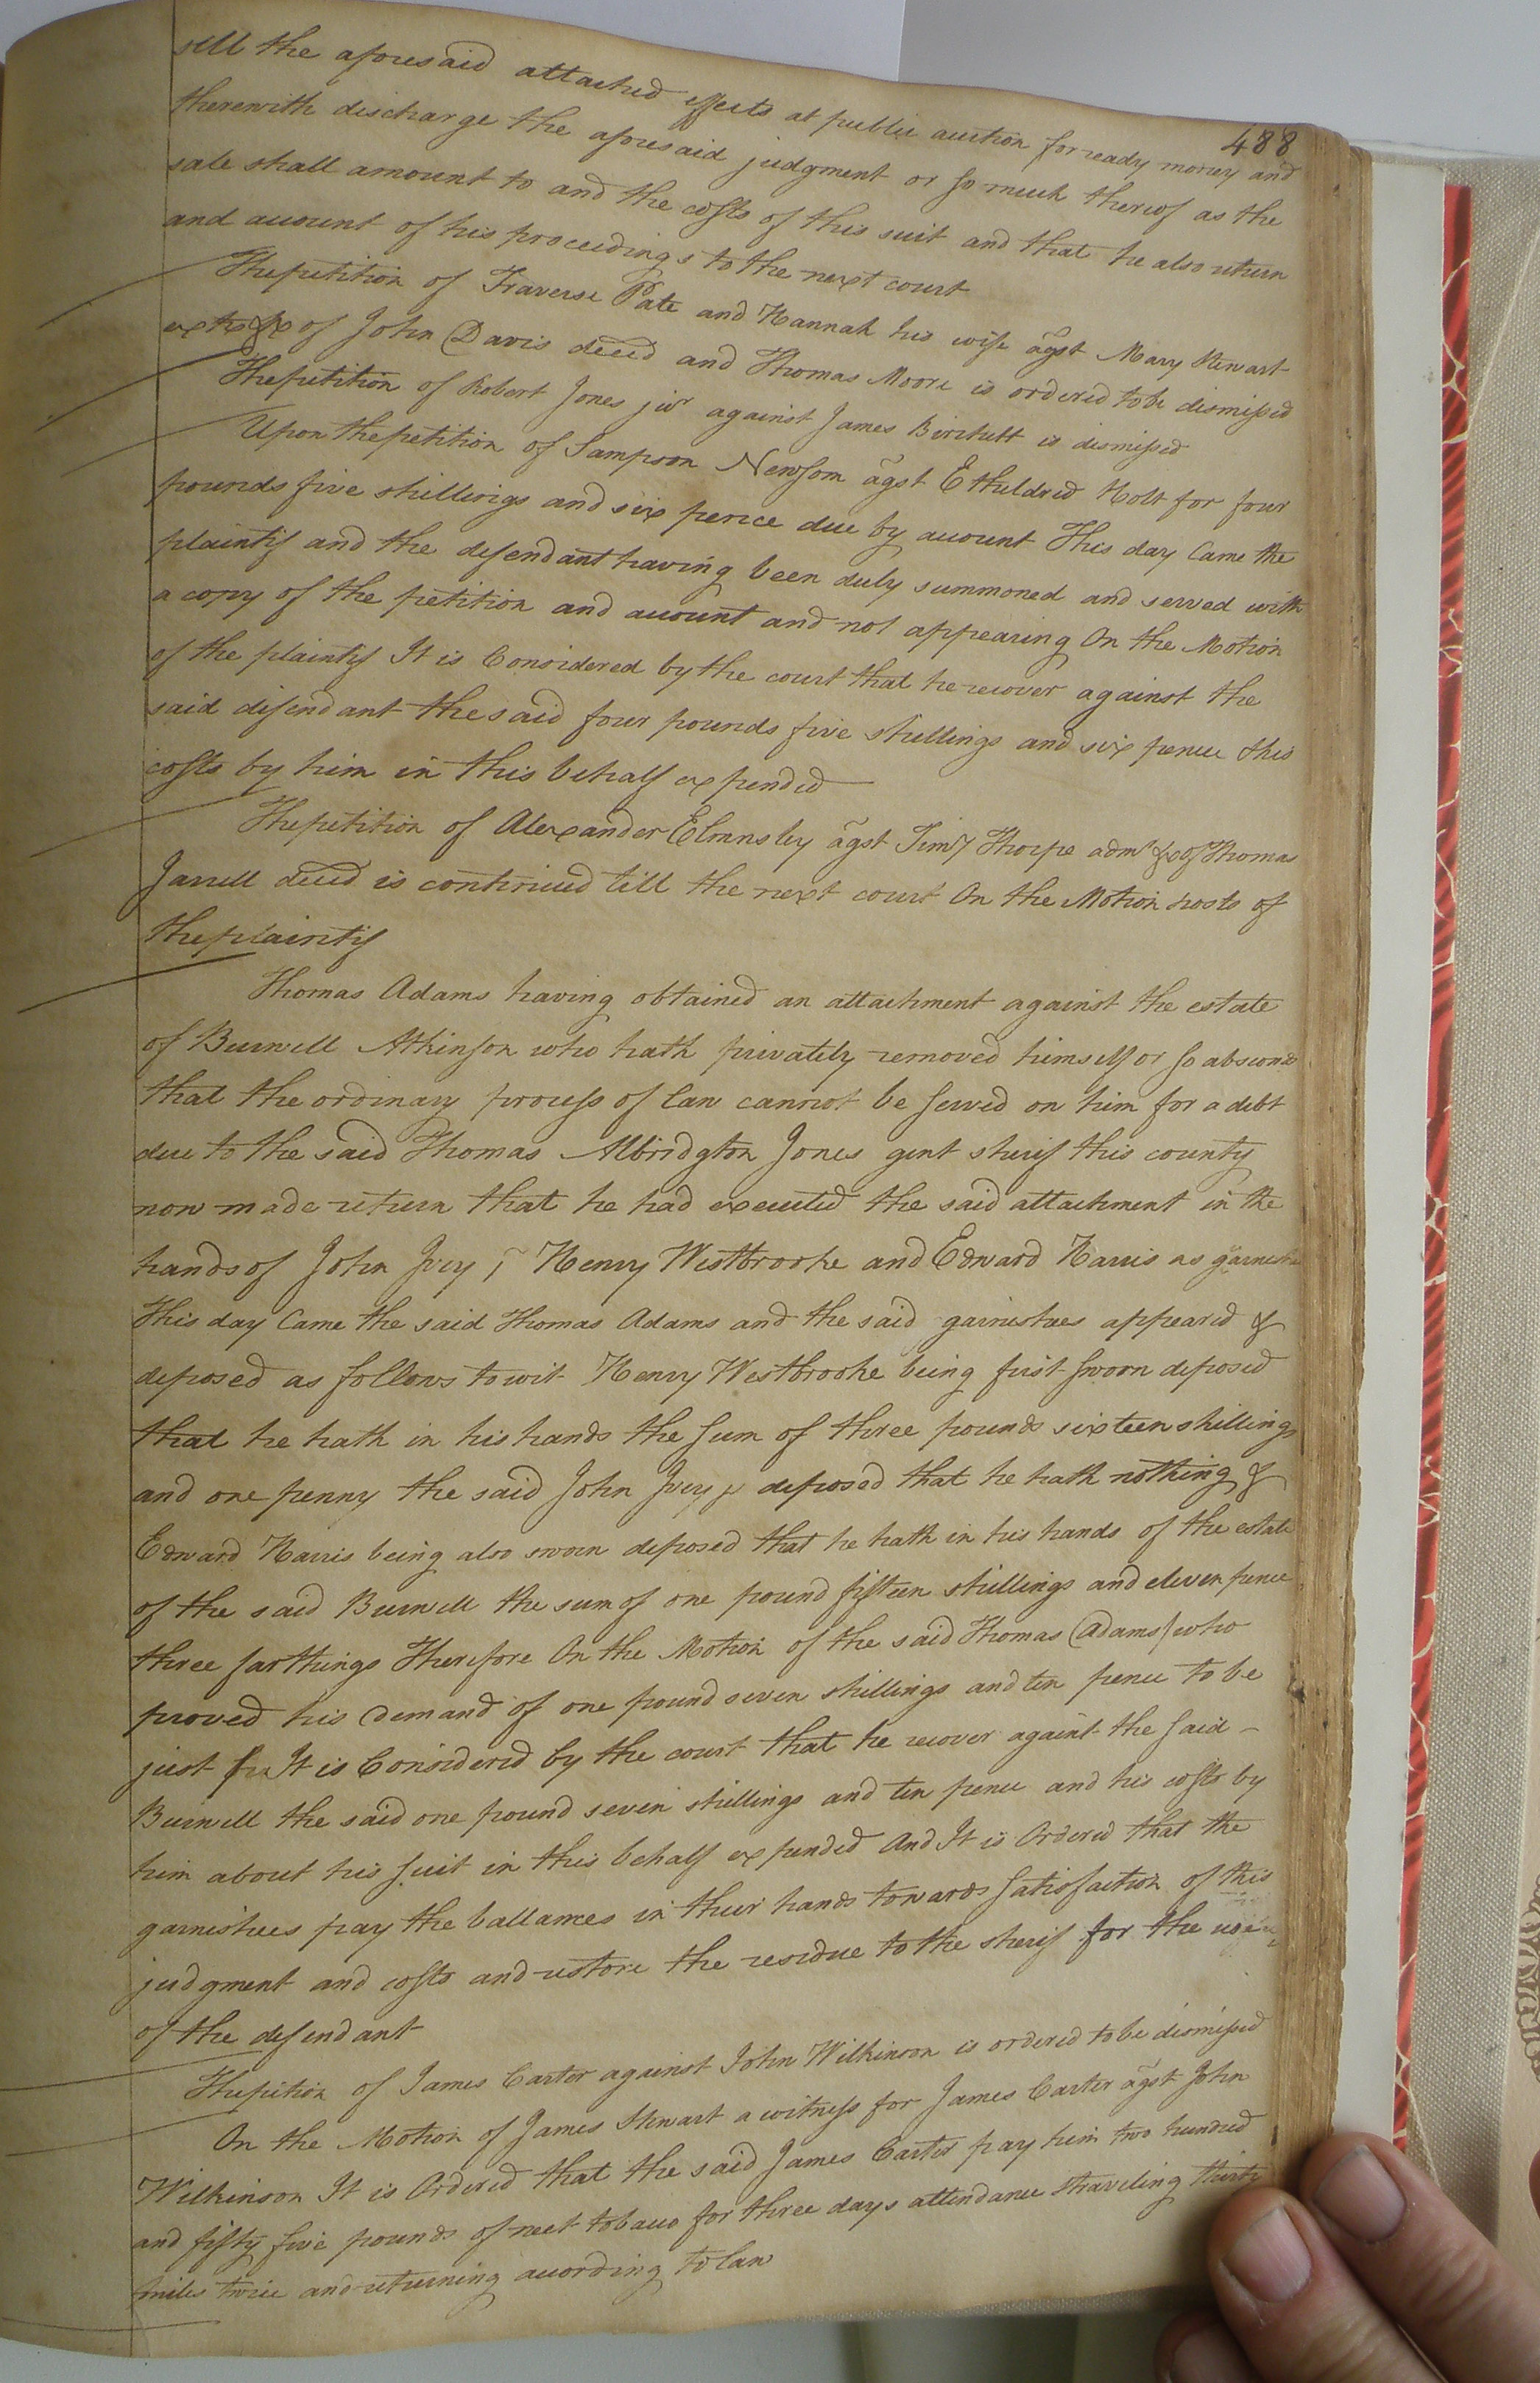 488
sell the aforesaid attached effects at public auction for ready money and
therewith discharge the aforesaid judgment or so much thereof as the
sale shall amount to and the costs of this suit and that he also return
and account of his proceedings to the next court
The petition of Traverse Pate and Hannah his wife agst Mary Stewart
of John Davis deced and Thomas Moore is ordered to be dismissed
The petition of Robert Jones junr against James Birchett is dismissed
Upon the petition of Sampson Newsom agst Etheldred Holt for four
pounds five shillings and six pence due by account This day Came the
plaintif and the defendant having been duly summoned and served with
a copy of the petition and account and not appearing On the Motion
of the plaintif It is Considered by the court that he recover against the
said defendant the said four pounds five shillings and six pence & his
costs by him in this behalf expended
The petition of Alexander agst Timy Thorpe admr &c of Thomas
Jarrell deced is continued till the next court On the Motion & costs of
the plaintif
Thomas Adams having obtained an attachment against the estate
of Burwell Atkinson who hath privately removed himself or so absconds
that the ordinary process of law cannot be served on him for a debt
due to the said Thomas Albridgton Jones gent sherif this county
now made return that he had executed the said attachment in the
hands of John Ivey Henry Westbrooke and Edward Harris as garnishees
This day Came the said Thomas Adams and the said garnishees appeared &
deposed as follows to wit Henry Westbrooke being first sworn deposed
that he hath in his hands the sum of three pounds sixteen shillings
and one penny the said John Ivey deposed that he hath nothing &
Edward Harris being also sworn deposed that he hath in his hands of the estate
of the said Burwell the sum of one pound fifteen shillings and eleven pence
three farthings Therefore On the Motion of the said Thomas Adams who
proved his demand of one pound seven shillings and ten pence to be
just It is Considered by the court that he recover against the said
Burwell the said one pound seven shillings and ten pence and his costs by
him about his suit in this behalf expended And It is Ordered that the
garnishees pay the ballances in their hands towards satisfaction of this
judgment and costs and restore the residue to the sherif for the use
of the defendant
The petition of James Carter against John Wilkinson is ordered to be dismissed
On the Motion of James Stewart a witness for James Carter agst John
Wilkinson It is Ordered that the said James Carter pay him two hundred
and fifty five pounds of neet tobacco for three days attendance & traveling thirty
miles twice and returning according to law